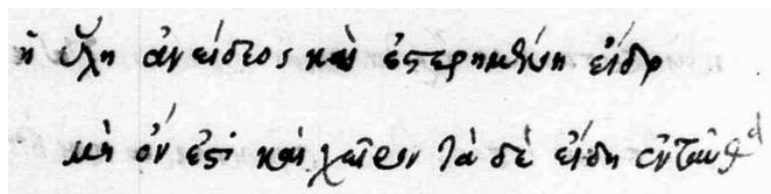 ἡ ὕλη ἀνείδεος καὶ ἐστερημένη εἴδους
μὴ ὄν ἐστι καὶ χεῖρον τὰ δὲ εἴδη ἐνταῦθα